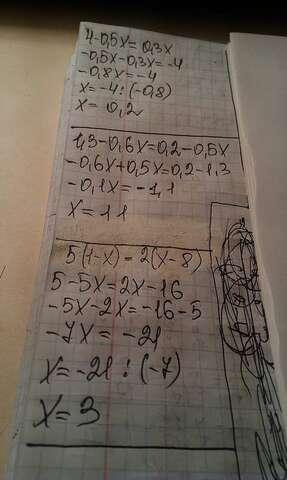 4-0,5x=0,3x
-0,5x-0,3x=-4
-0,8x=-4
x=-4:(-0,8)
x=0,2
1,3-0,6x=0,2-0,5x
-0,6x+0,5x=0,2-1,3
-0,1x=-1,1
x=11
5(1-x)=2(x-8)
5-5x=2x-16
-5x-2x=-16-5
-7x=-21
x=-21:(-7)
x=3